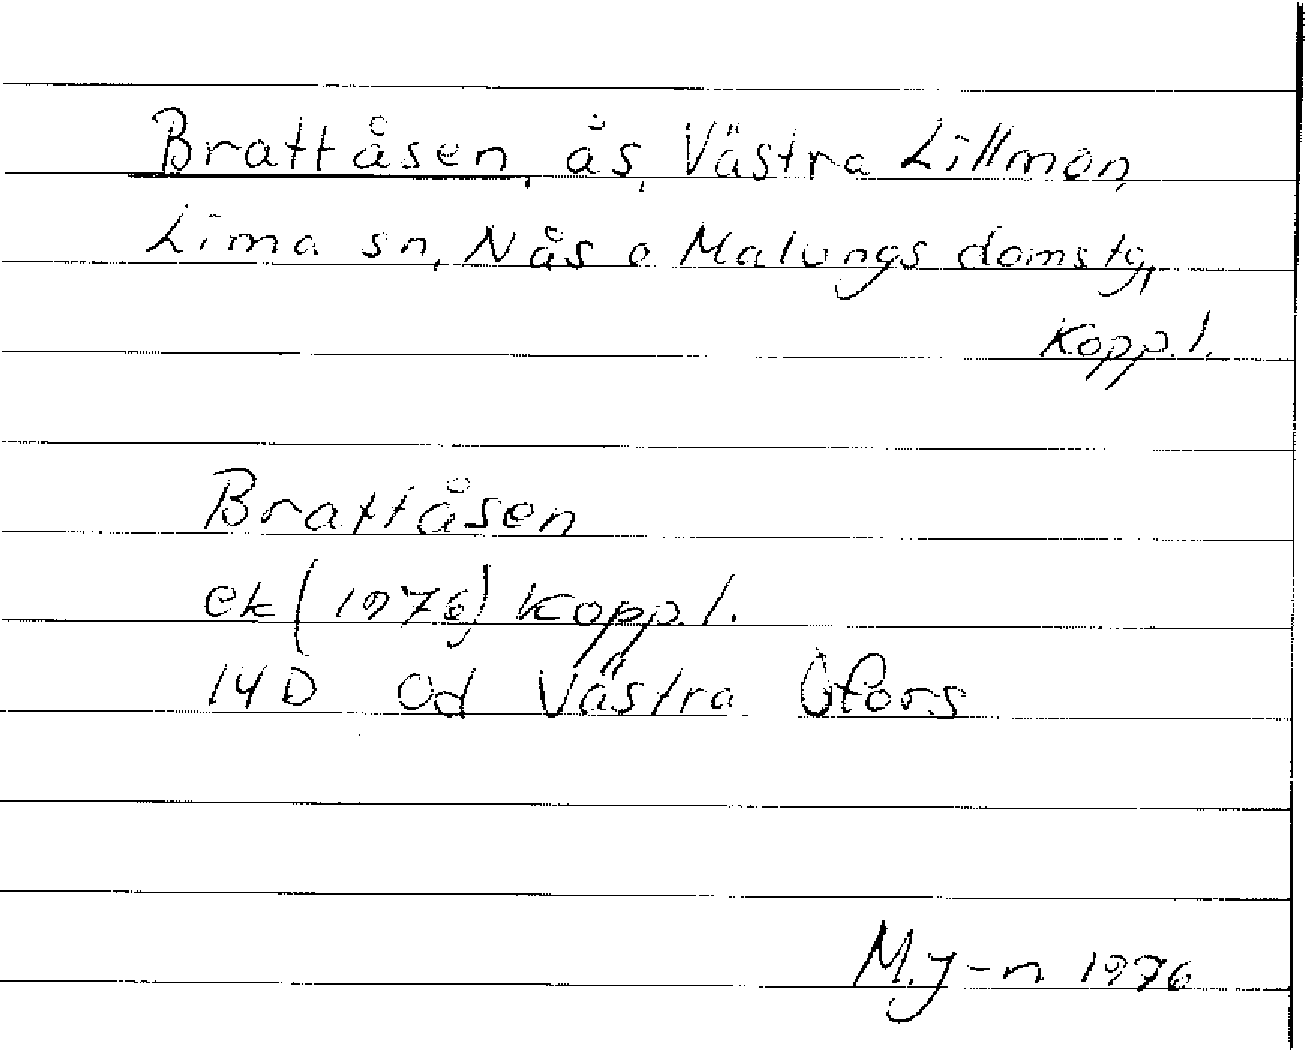 Brattåsen, ås, Västra Lillmon,
Lima sn, Nås o Malungs domstg,
Kopp. l.
Brattåsen
ek (1976) Kopp. l.
14D Od Västra Ofors
M.J-n 1976